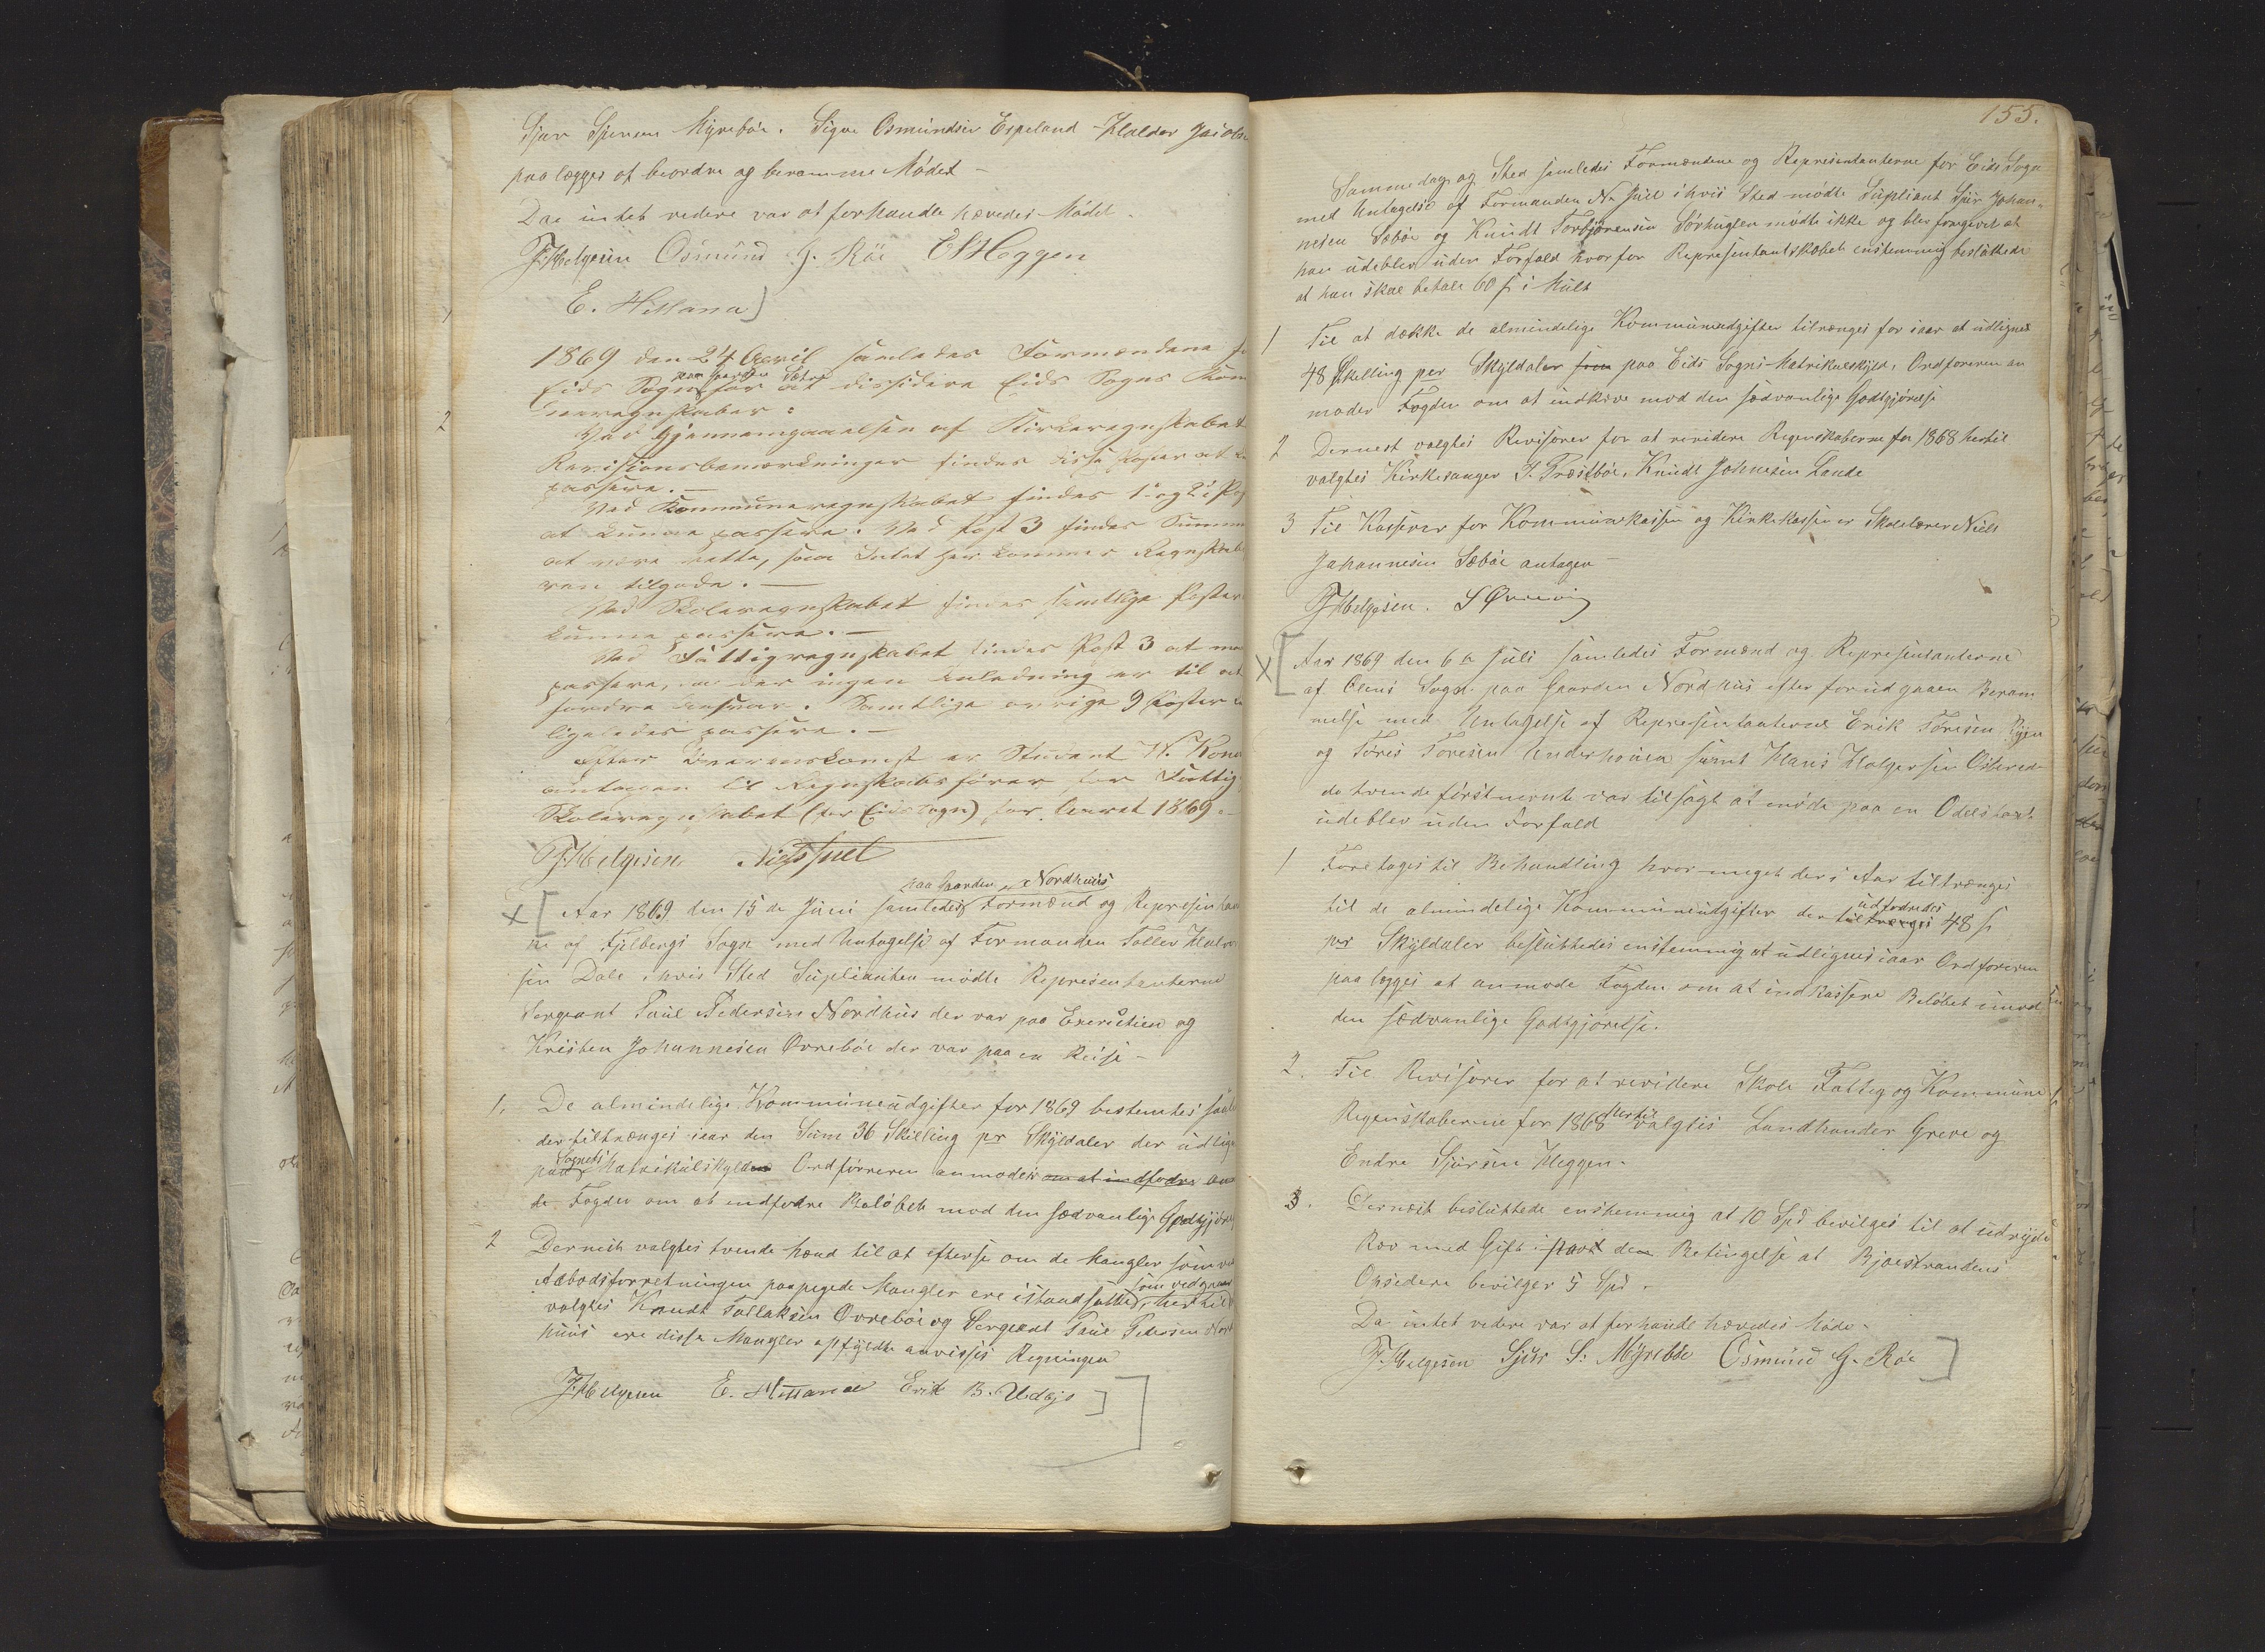 Sjur Sjursen Myrebøe. Sigve Osmundsen Espeland Haldor Jacobs
paa lægges at beordre og beramme Mødet –
Da intet videre var at forhandle hævedes Mødet.
J Helgesen Osmund G. Röe E S Heggen
E. Hillana
1869 den 24 April samledes Formændene
paa Gaarden
Eids Sogn for at dissidere Eids Sogns Kom
muneregnskaber:
Ved Gjennemgaaelsen af Kirkeregnskabet
Revisionsbemærkninger findes disse Poster at
passere. –
Ved Kommuneregnskabet findes 1 og 2 Post
at kunne passere. Ved Post 3 findes Summen
at være rette, saa Intet her kommer Regnskab
ren tilgode. –
Ved Skoleregnskabet findes samtlige Poster
kunne passere. –
Ved Fattigregnskabet findes Post 3 at
passere, da der ingen Anledning er til at
fordre Ansvar. Samtlige øvrige 9 Poster
ligeledes passere. –
Efter Overenskomst er Student W. Kone
antagen til Regnskabsfører for Fattig
Skoleregnskabet (for Eids Sogn) for Aaret 1869. –
J Helgesen Niels Juel
paa Gaarden Nordhuus
Aar 1869 den 15de Juni samledes Formænd og Represen
ne af Fjelbergs Sogn med Untagelse af Formanden Tollev Halvor
sen Dale i hvis Sted Suplianten mødte Representanterne
Sergeant Paul Pedersen Nordhus der var paa Exersitien og
Kristen Johannesen Ovrebøe der var paa en Reise –
1, De almindelige Kommuneudgifter for 1869 bestemtes
der tiltrænges iaar den Sum 36 Skilling pr Skyldaler der udlig
Sognets
paa Matrikulskylden Ordføreren anmodes om at indfodre an
de Fogden om at indfodre Beløbet mod den sædvanlige Godtgjørel
2 Dernest valgtes tvende Mænd til at efterse om de Mangler som ved
Aabodsforretningen paapegede Mangler ere istandsatte, hertil
som vedgaar
valgtes Knudt Tollaksen Ovrebøe og Sergeant Paul Pedersen Nord
huus ere disse Mangler opfyldte anvisses Regningen
J Helgesen E. Hillana Erik B. Udbjo
155.
Samme dag og Sted samledes Formændene og Representanterne for Eids Sogn
med Untagelse af Formanden N. Juel i hvis Sted mødte Supliant Sjur Johan-
nesen Sæbøe og Knudt Torbjørensen Sørhuglen mødte ikke og blev forgivet at
han udeblev uden Forfald hvorfor Representantskabet enstemmig besluttede
at han skal betale 60 s i Mult
1 Til at dække de almindelige Kommuneudgifter tiltrænges for iaar at udlignes
48 Skilling per Skyldaler paa Eids Sogns Matrikulskyld, Ordføreren an
moder Fogden om at indkræve mod den sædvanlige Godtgjørelse
2 Dernest valgtes Revisorer for at revidere Regnskaberne for 1868 hertil
valgtes Kirkesanger T. Præstbøe, Knudt Johnesen Lande
3 Til Kasserer for Kommunekassen og Kirkekassen er Skolelærer Niels
Johannesen Sæbøe antagen
J Helgesen. S Øvrevig
Aar 1869 den 6te Juli samledes Formænd og Representanterne
af Ølens Sogn paa Gaarden Nordhus efter forudgaaen Beram
melse med Untagelse af Representanterne Erik Toresen Rygen
og Tores Toresen Underhouen samt Hans Holgersen Østerved
de tvende førstnevnte var tilsagt at møde paa en Odelstavt
udeblev uden Forfald
1 Foretages til Behandling hvor meget der i Aar tiltrænges
udfodredes
til de almindelige Kommuneudgifter der tiltrænges 48 s
per Skyldaler besluttedes enstemmig at udlignes iaar Ordføreren
paa lægges at anmode Fogden om at indkassere Beløbet imod
den sædvanlige Godtgjørelse.
2. Til Revisorer for at revidere Skole Fattig og Kommune
Regnskaberne for 1868 hertil valgtes Landhander Greve og
Endre Sjursen Heggen.
3. Dernæst besluttede enstemmig at 10 Spd bevilges til at udryde
Rov med Gift i paa den Betingelse at Bjoestrandens
Opsidere bevilger 5 Spd.
Da intet videre var at forhandle hævedes Møde.
J. Helgesen Sjur S: Myrebøe Osmund G. Röe